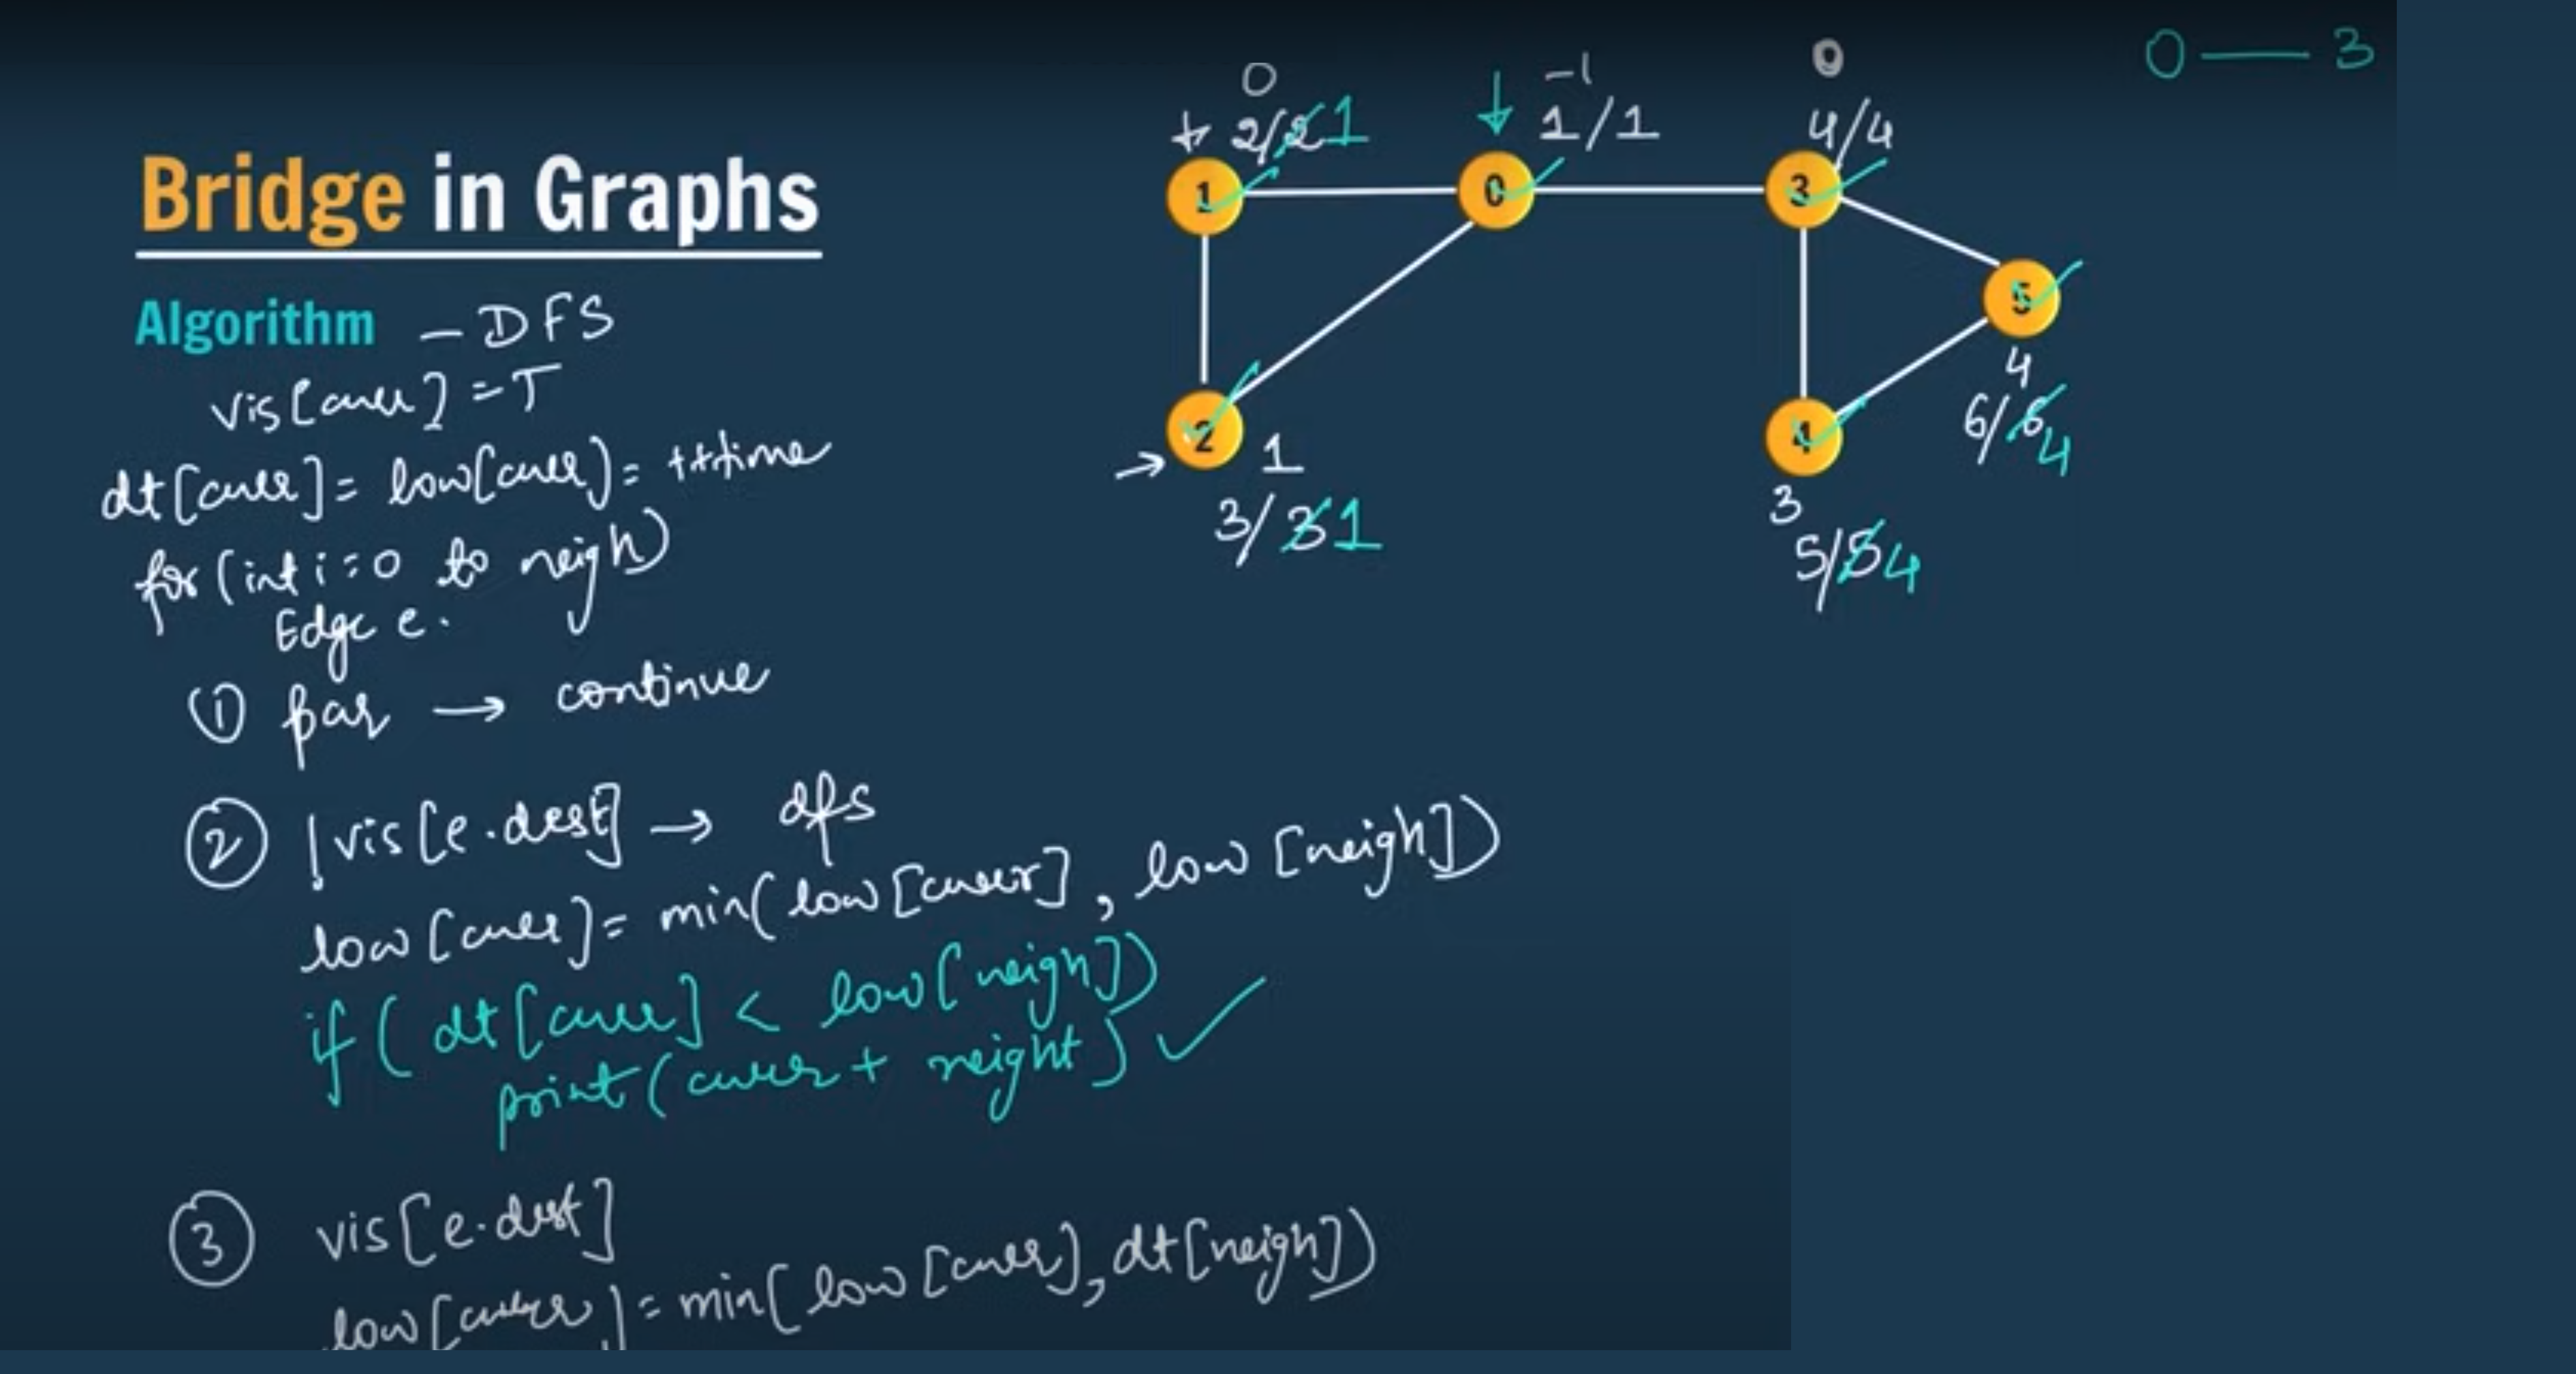 Bridge in Graphs
Algorithm - DFS
vis[curr] = T
dt[curr] = low[curr] = ++time
for (int i=0 to neigh)
Edge e.
① par → continue
② !vis[e.dest] → dfs
low[curr] = min(low[curr], low[neigh])
if (dt[curr] < low[neigh])
print(curr + neight) ✓
③ vis[e.dest]
low[curr] = min(low[curr], dt[neigh])
0 -1 0
2/2 1 ↓ 1/1 4/4
1 0 3
5
4
6/6 4
→ 2 1
3/3 1
4
3
5/5 4
0 — 3